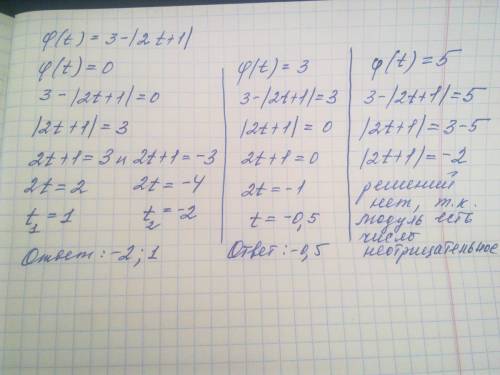 φ(t) = 3 - |2t+1|
φ(t) = 0
3 - |2t+1| = 0
|2t+1| = 3
2t+1 = 3 и 2t+1 = -3
2t = 2 2t = -4
t₁ = 1 t₂ = -2
Ответ: -2; 1
φ(t) = 3
3 - |2t+1| = 3
|2t+1| = 0
2t+1 = 0
2t = -1
t = -0,5
Ответ: -0,5
φ(t) = 5
3 - |2t+1| = 5
|2t+1| = 3-5
|2t+1| = -2
решений
нет, т.к.
модуль есть
число
неотрицательное